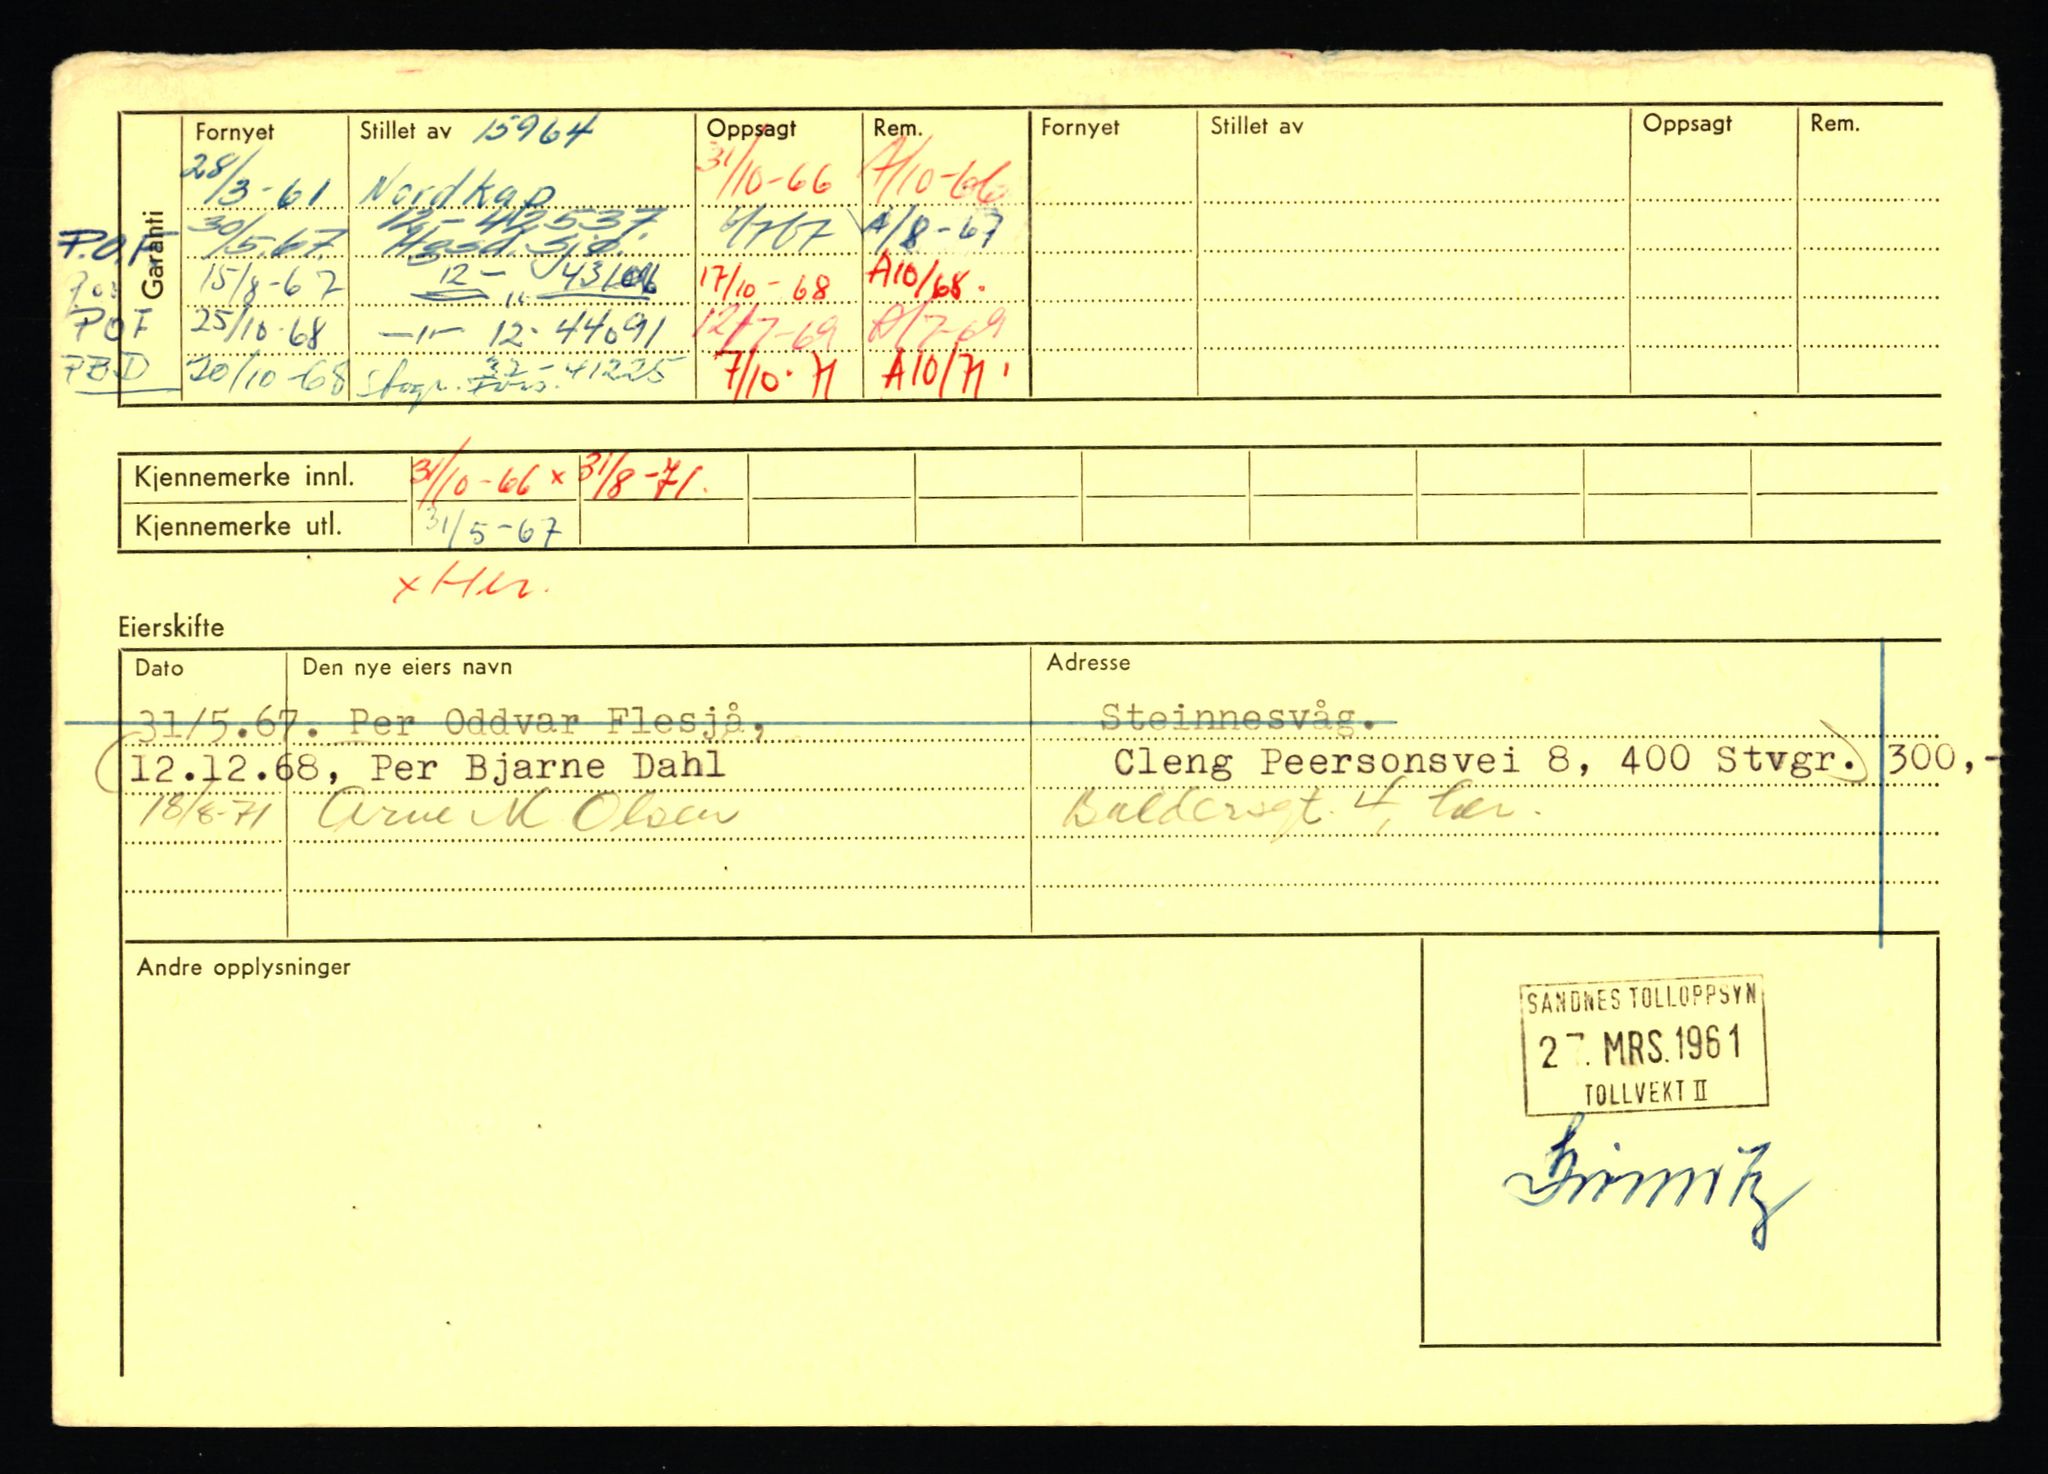 Garanti
Fornyet Stillet av 15964 Oppsagt Rem. Fornyet Stillet av Oppsagt Rem.
28/3-61 Nordkap 31/10-66 A/10-66
12-42537.
P.O.F 30/5.67. Hgsd. Sjø. A/8-67
15/8-67 12- 43106 17/10-68 A10/68.
POF 25/10-68 -"- 12-44091 12/7-69 A/7-69
PBD 20/10-68 32-41225 7/10-71 A10/71.
Kjennemerke innl. 31/10-66 x 31/8-71.
Kjennemerke utl. 31/5-67
x Her.
Eierskifte
Dato Den nye eiers navn Adresse
31/5.67. Per Oddvar Flesjå, Steinnesvåg.
(12.12.68, Per Bjarne Dahl Cleng Peersonsvei 8, 400 Stvgr.) 300,-
18/8-71 Arne M Olsen Baldersgt. 4, her.
Andre opplysninger
SANDNES TOLLOPPSYN
27. MRS. 1961
TOLLVEKT II